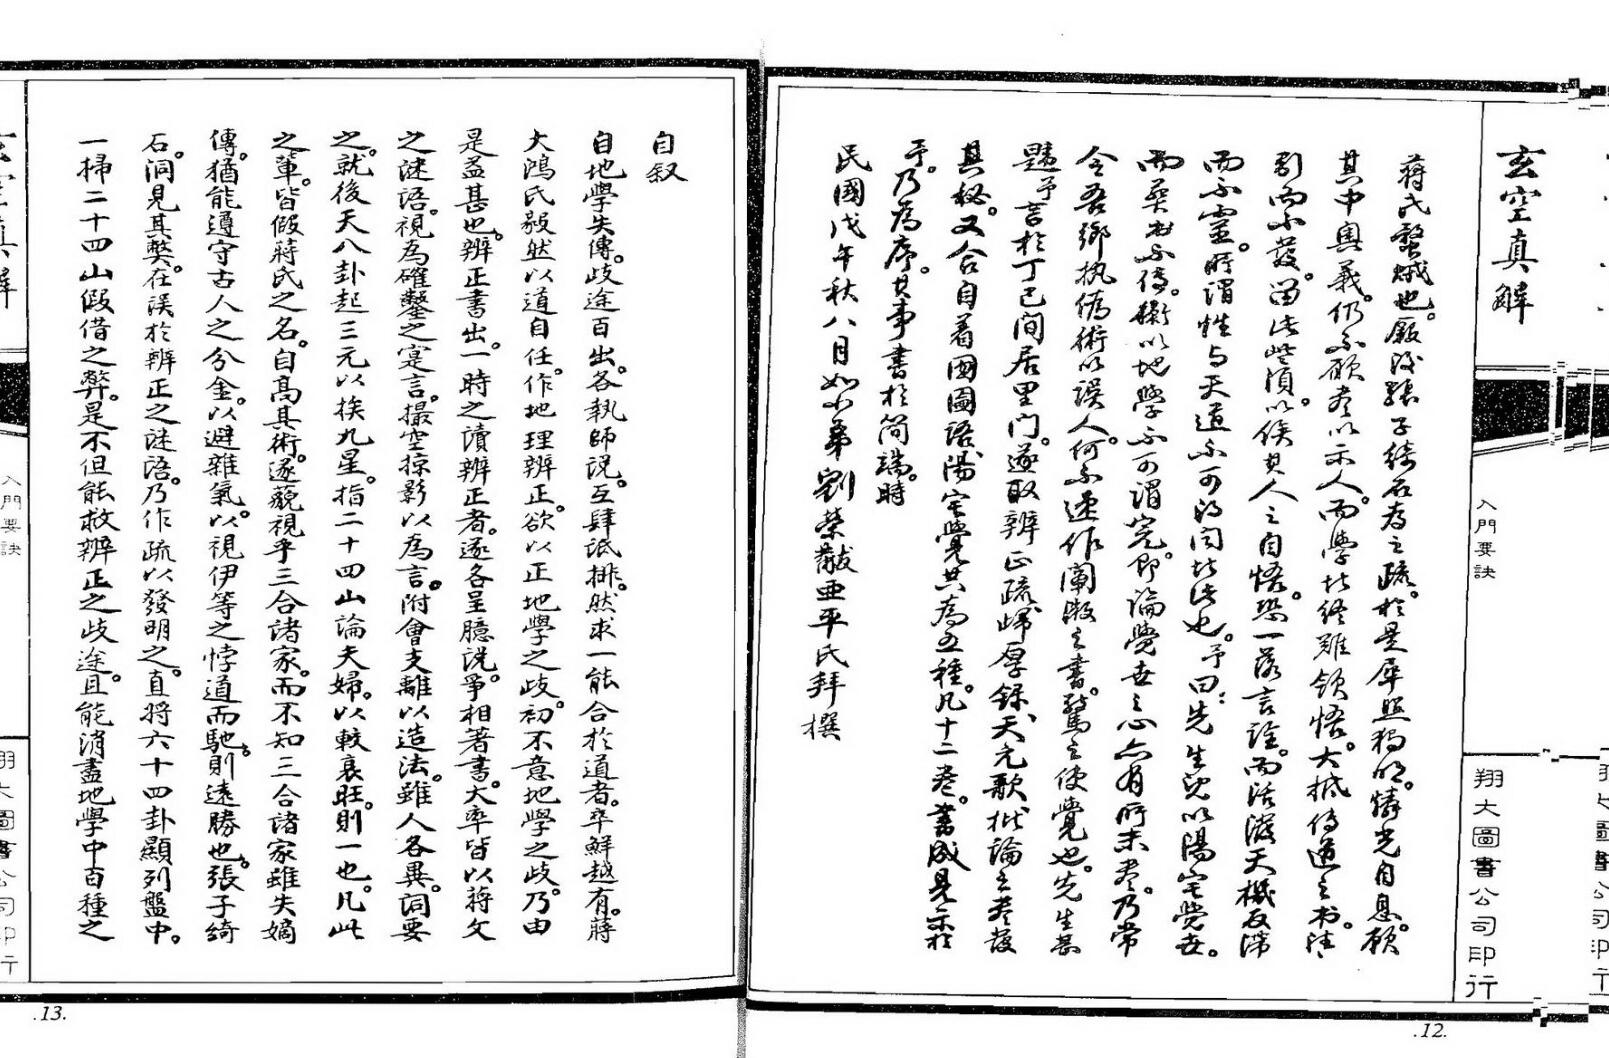 玄空真解
入門要訣
翔大圖書公司印行
蔣氏蟊蠈也。厥後張子綺石為之疏。於是犀照獨明。燐光自息。顧
其中奧義。仍不願盡以示人。而學者終難領悟。大抵傳道之書。往往
引而不發。留此些須。以俟其人之自悟。恐一落言詮。而活潑天機反滯
而不靈。所謂性與天道不可得聞者此也。予曰：先生既以陽宅覺世。
而葬書不傳。衡以地學不可謂完。即論覺世之心亦有所未盡。乃當
今吾鄉執偽術以誤人。何不速作闡微之書。驚之使覺也。先生甚
韙予言於丁巳間居里門。遂取辨正疏歸厚錄天元歌批論之盡發
其秘。又合自着囫圇語陽宅覺共為五種。凡十二卷。書成見示於
予。乃為序。其事書於簡端。時
民國戊午秋八月如小弟劉榮黻亞平氏拜撰
.12.
自叙
自地學失傳。歧途百出。各執師說。互肆詆排。然求一能合於道者。卒鮮越有。蔣
大鴻氏毅然以道自任。作地理辨正。欲以正地學之歧。初不意地學之歧。乃由
是益甚也。辨正書出。一時之讀辨正者。遂各呈臆說。爭相著書。大率皆以蔣文
之謎語。視為確鑿之寔言。撮空掠影以為言。附會支離以造法。雖人各異。詞要
之。就後天八卦起三元以挨九星。指二十四山論夫婦。以較衰旺。則一也。凡此
之輩。皆假蔣氏之名。自高其術。遂藐視乎三合諸家。而不知三合諸家雖失嫡
傳。猶能遵守古人之分金。以避雜氣。以視伊等之悖道而馳。則遠勝也。張子綺
石。洞見其弊。在誤於辨正之謎語。乃作疏以發明之。直將六十四卦顯列盤中。
一掃二十四山假借之弊。是不但能救辨正之歧途。且能消盡地學中百種之
入門要訣
.13.